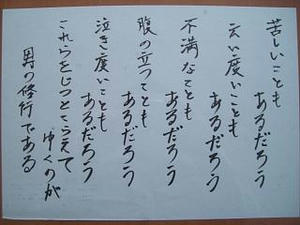 苦しいことも
あるだろう
云い度いことも
あるだろう
不満なことも
あるだろう
腹の立つことも
あるだろう
泣き度いことも
あるだろう
これらをじっとこらえて
ゆくのが
男の修行である